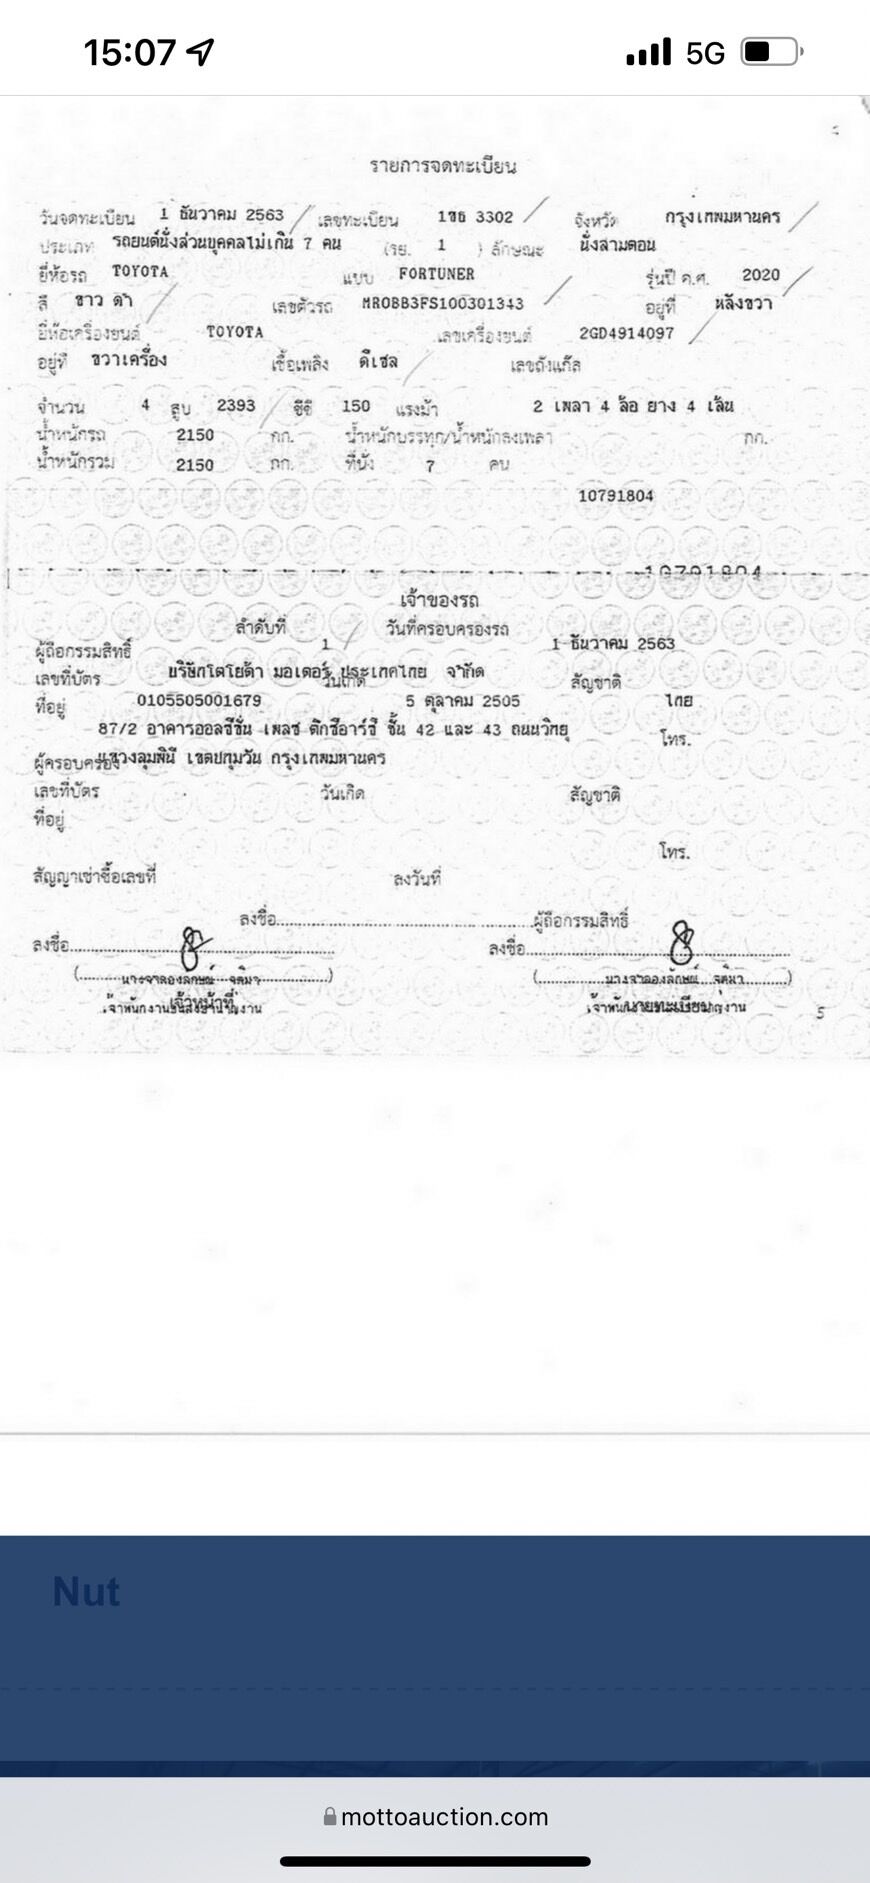 15:07 5G
รายการจดทะเบียน
วันจดทะเบียน 1 ธันวาคม 2563 เลขทะเบียน 1ขธ 3302 จังหวัด กรุงเทพมหานคร
ประเภท รถยนต์นั่งส่วนบุคคลไม่เกิน 7 คน (รย. 1 ) ลักษณะ นั่งสามตอน
ยี่ห้อรถ TOYOTA แบบ FORTUNER รุ่นปี ค.ศ. 2020
สี ขาว ดำ เลขตัวรถ MR0BB3FS100301343 อยู่ที่ หลังขวา
ยี่ห้อเครื่องยนต์ TOYOTA เลขเครื่องยนต์ 2GD4914097
อยู่ที่ ขวาเครื่อง เชื้อเพลิง ดีเซล เลขถังแก๊ส
จำนวน 4 สูบ 2393 ซีซี 150 แรงม้า 2 เพลา 4 ล้อ ยาง 4 เส้น
น้ำหนักรถ 2150 กก. น้ำหนักบรรทุก/น้ำหนักลงเพลา กก.
น้ำหนักรวม 2150 กก. ที่นั่ง 7 คน
10791804
10791804
เจ้าของรถ
ลำดับที่ 1 วันที่ครอบครองรถ 1 ธันวาคม 2563
ผู้ถือกรรมสิทธิ์ บริษัทโตโยต้า มอเตอร์ ประเทศไทย จำกัด
เลขที่บัตร 0105505001679 วันเกิด 5 ตุลาคม 2505 สัญชาติ ไทย
ที่อยู่ 87/2 อาคารออลซีซั่น เพลซ ตึกซีอาร์ซี ชั้น 42 และ 43 ถนนวิทยุ โทร.
แขวงลุมพินี เขตปทุมวัน กรุงเทพมหานคร
ผู้ครอบครอง
เลขที่บัตร วันเกิด สัญชาติ
ที่อยู่
โทร.
สัญญาเช่าซื้อเลขที่ ลงวันที่
ลงชื่อ ผู้ถือกรรมสิทธิ์
ลงชื่อ ลงชื่อ
เจ้าหน้าที่ นายทะเบียน
5
Nut
mottoauction.com